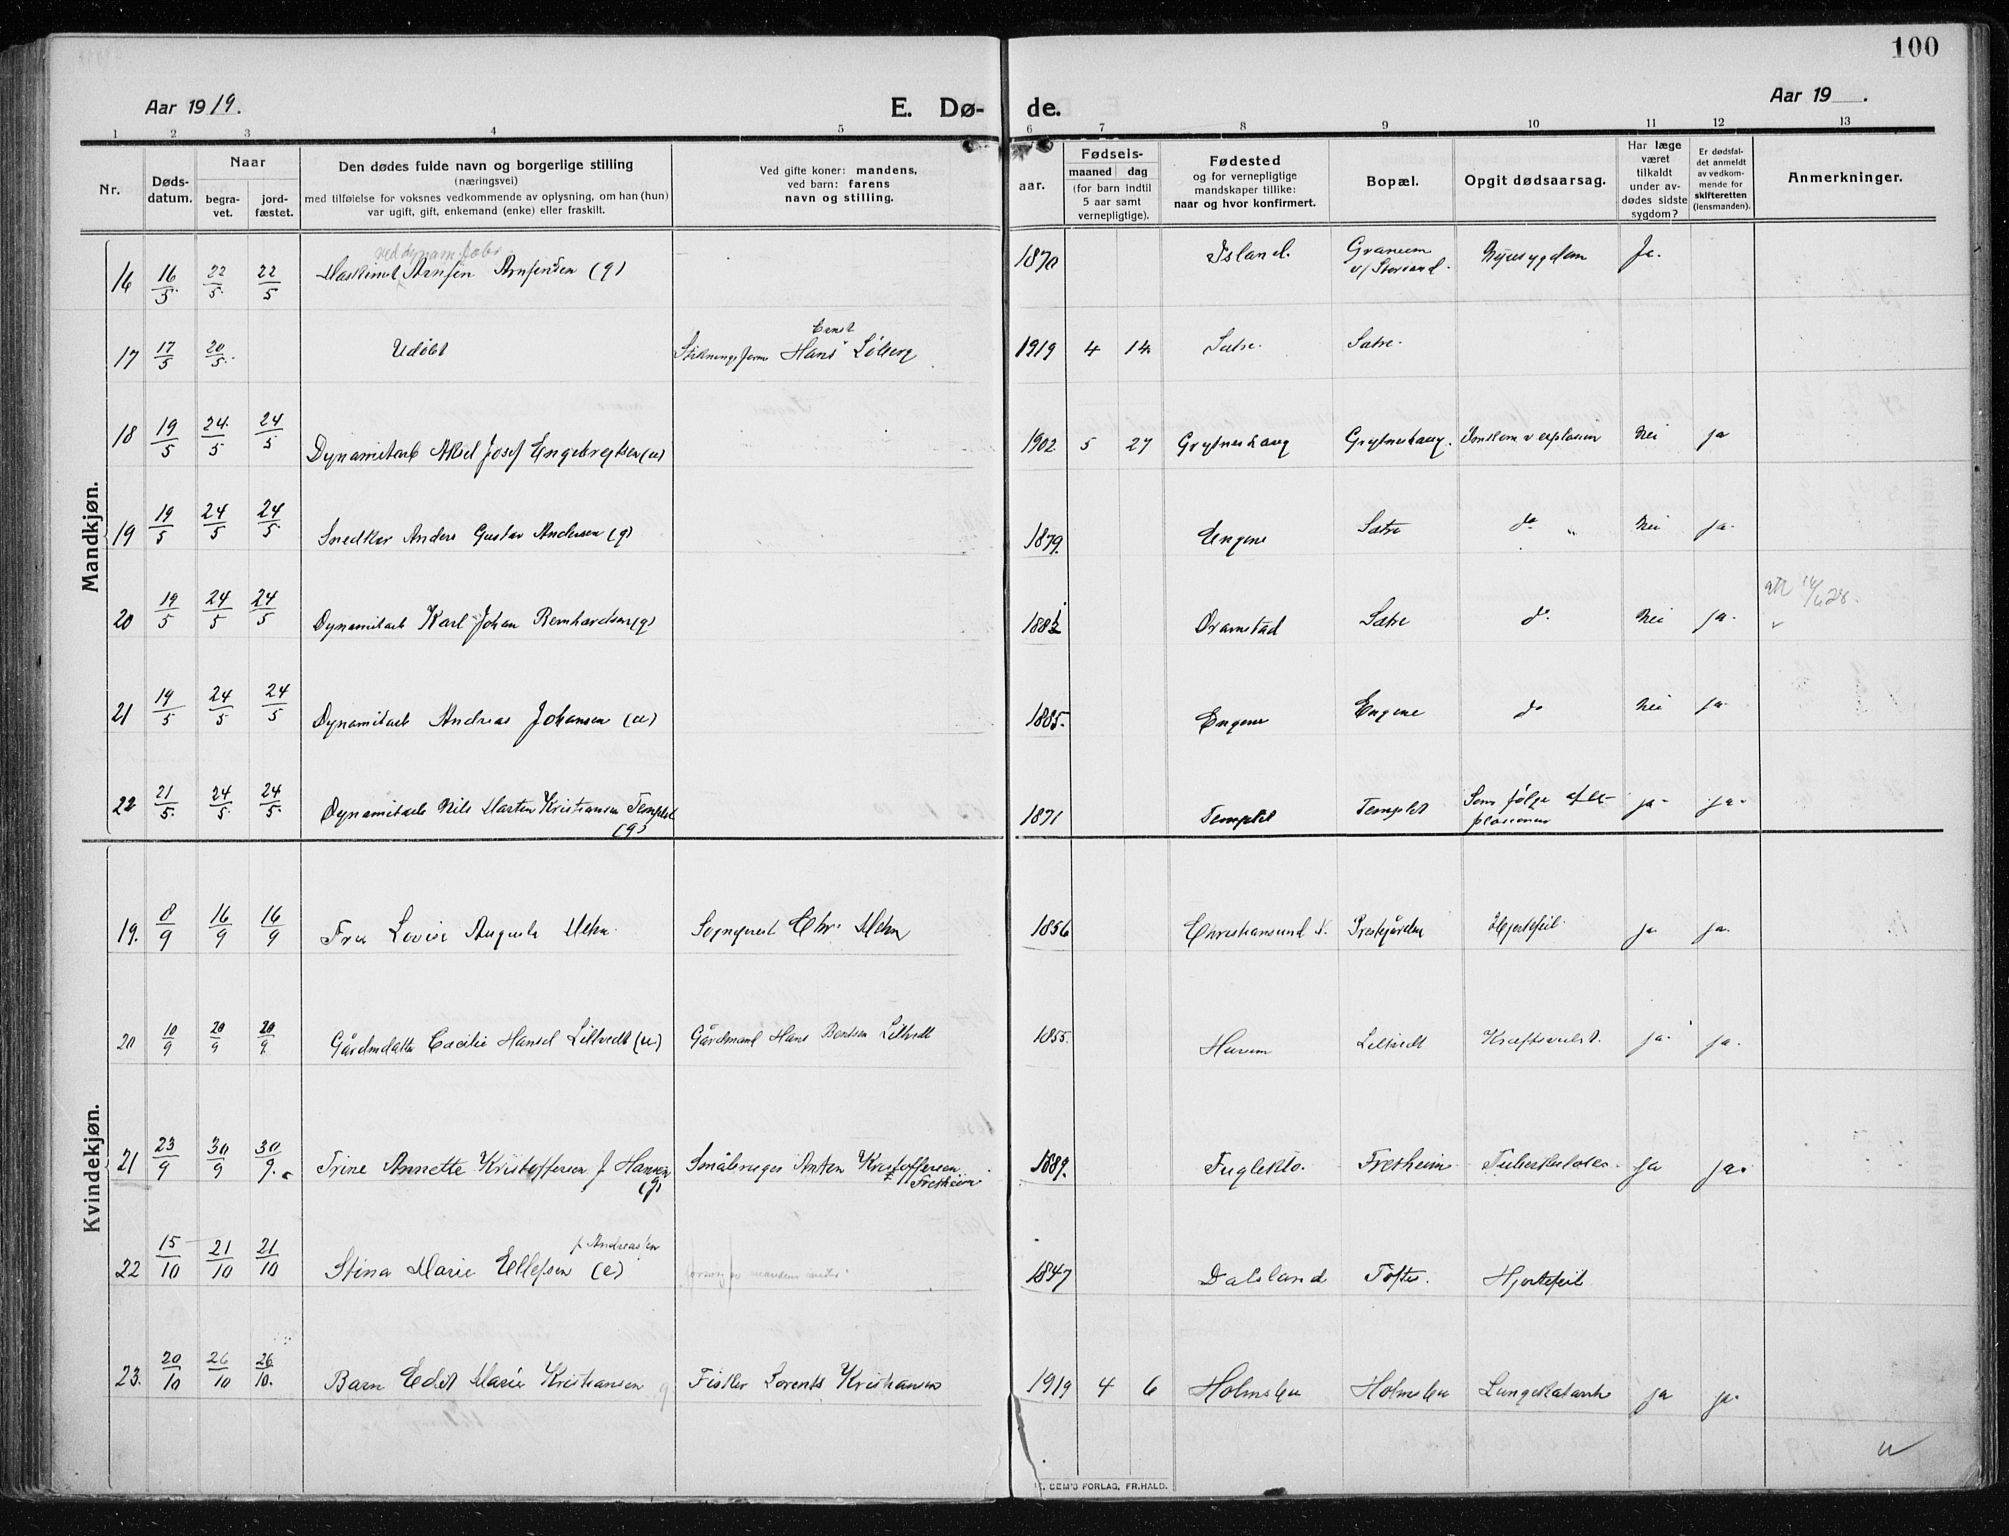 100
Aar 1919.
E. Dø-
de.
Aar 19 .
1 2 3 4 5 6 7 8 9 10 11 12 13
Nr.
Døds-
datum.
Naar
begra-
vet.
jord-
fæstet.
Den dødes fulde navn og borgerlige stilling
(næringsvei)
med tilføielse for voksnes vedkommende av oplysning, om han (hun)
var ugift, gift, enkemand (enke) eller fraskilt.
Ved gifte koner: mandens,
ved barn: farens
navn og stilling.
aar.
Fødsels-
maaned dag
(for barn indtil
5 aar samt
vernepligtige).
Fødested
og for vernepligtige
mandskaper tillike:
naar og hvor konfirmert.
Bopæl.
Opgit dødsaarsag.
Har læge
været
tilkaldt
under av-
dødes sidste
sygdom?
Er dødsfal-
det anmeldt
av vedkom-
mende for
skifteretten
(lensmanden).
Anmerkninger.
Mandkjøn.
16 16/5 22/5 22/5 (g) 1870 Island. Graneen Nyresygdom Ja.
17 17/5 20/5 Udøbt Hans Løberg 1919 4 14 Sætre. Sætre.
Ernst
18 19/5 24/5 24/5 Dynamitarb Aksel Josef Engebregtsen (u) 1902 5 27 Grytneshaug Grytneshaug. Omkom v explosion Nei ja
19 19/5 24/5 24/5 Snedker Anders Gustav Andersen (g) 1879. Engene Sætre do " Nei ja.
20 19/5 24/5 24/5 Dynamitarb Karl Johan Bernhardsen (g) Dramstad Sætre do Nei ja.
21 19/5 24/5 24/5 Dynamitarb Andreas Johansen (u) 1885. Engene Engene do Nei ja.
22 21/5 24/5 24/5 Dynamitarb Nils Marten Kristiansen Templet
(g) 1871 Templet Templet Som følge af ex-
plosionen ja. ja.
Kvindekjøn.
19. 8/9 16/9 16/9 Fru Lovise Augusta Mehn Sogneprest Chr. Mehn 1856 Christiansund N. Prestgården Hjertefeil ja ja.
20 10/9 20/9 20/9 Gårdmdatter Cecilie Hansd Liltvedt (u) Gårdmand Hans Bentsen Liltvedt 1855. Hurum Liltvedt Kræftsvulst. ja. ja.
21 23/9 30/9 30/9. Trine Annette Kristoffersen f Hansen
(g) Småbruger Anton Kristoffersen
Fretheim 1889. Fuglekto. Fretheim Tuberkulose ja ja.
22 15/10 21/10 21/10 Stina Marie Ellefsen (e) 1847 Dalsland Tofte. Hjertefeil
f Andreassen
23. 20/10 26/10 26/10. Barn Edit Marie Kristiansen Fisker Lorents Kristiansen 1919 4 6 Holmsbu Holmsbu Lungekatarrh ja ja.
SEM'S FORLAG, FR.HALD.